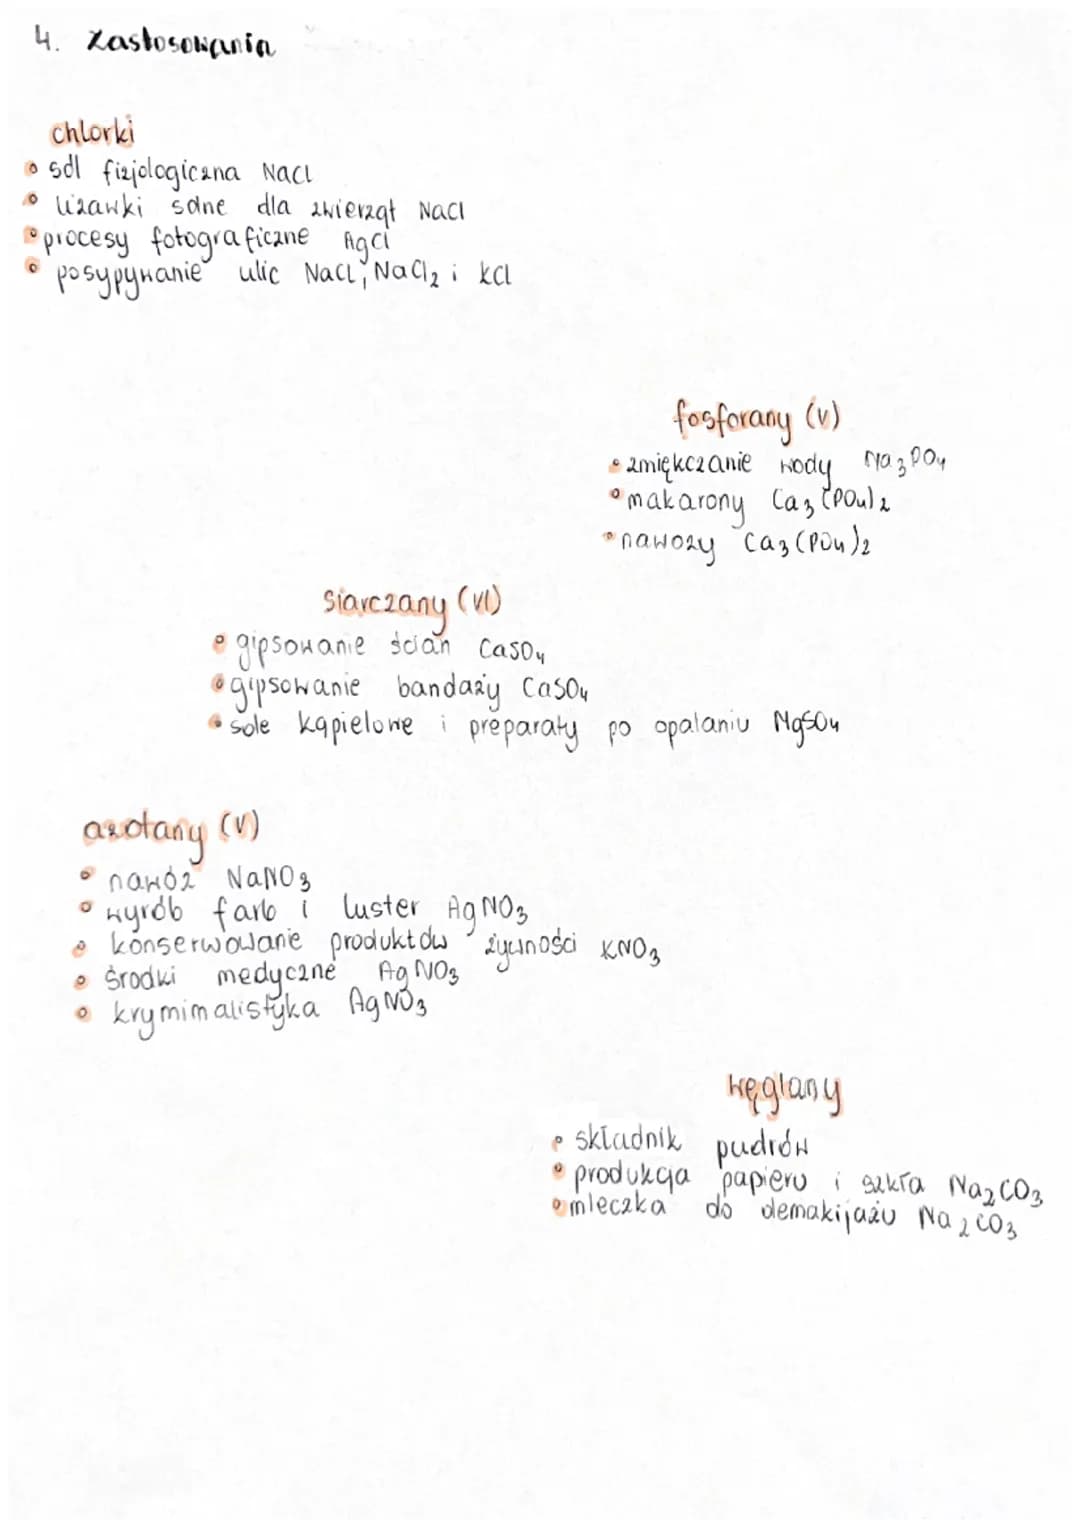 4. Zastosowania
chlorki
sól fizjologiczna NaCl
lizawki solne dla zwierząt NaCl
procesy fotograficzne AgCl
posypywanie ulic NaCl, NaCl₂ i KCl
fosforany (V)
zmiękczanie wody Na₃PO₄
makarony Ca₃(PO₄)₂
nawozy Ca₃(PO₄)₂
siarczany (VI)
gipsowanie ścian CaSO₄
gipsowanie bandaży CaSO₄
sole kąpielowe i preparaty po opalaniu MgSO₄
azotany (V)
nawóz NaNO₃
wyrób farb i luster AgNO₃
konserwowanie produktów żywności KNO₃
środki medyczne AgNO₃
krymimalistyka AgNO₃
węglany
składnik pudrów
produkcja papieru i szkła Na₂CO₃
mleczka do demakijażu Na₂CO₃